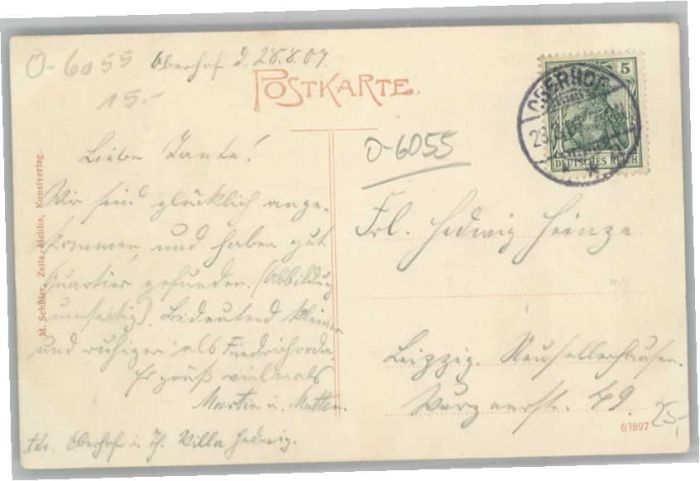 O-6055 Oberhof d. 28.8.07.
POSTKARTE.
15.-
O-6055
Liebe Tante!
Wir sind glücklich ange-
kommen und haben gut
Quartier gefunden. (Abbildung
umseitig). Bedeutend kleiner
und ruhiger als Friedrichroda
Es grüßt vielmals
Martin u. Mutter.
Adr. Oberhof i. Th. Villa Hedwig.
Frl. Hedwig Heinze
Leipzig. Neusellerhausen.
Wurznerstr. 49.
25,-
61897
M. Schüler, Zella-Mehlis, Kunstverlag.
5
OBERHOF
DEUTSCHES REICH